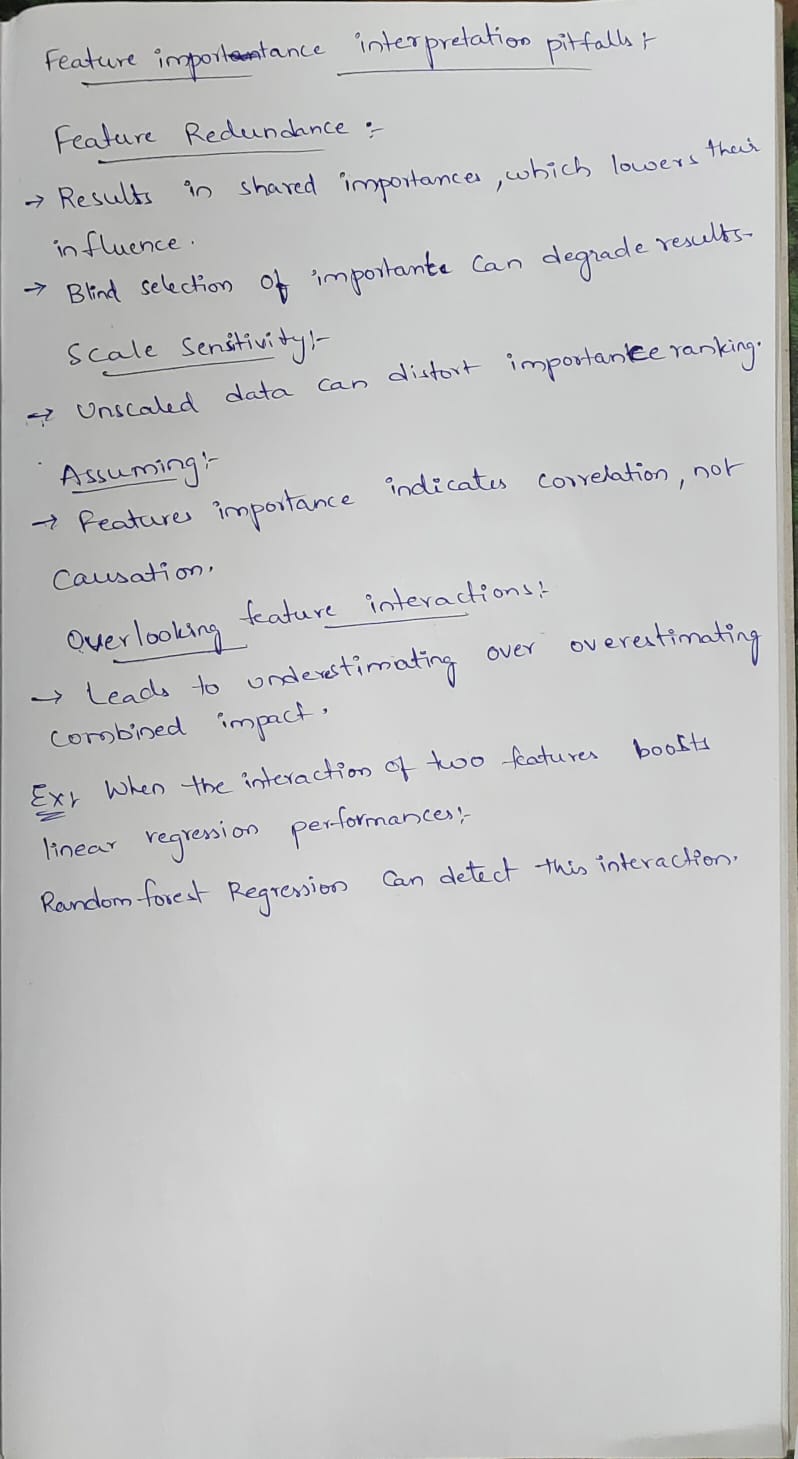 Feature importance interpretation pitfalls :-
Feature Redundance :-
→ Results in shared importances, which lowers their
influence.
→ Blind selection of importante can degrade results.
Scale Sensitivity :-
→ Unscaled data can distort importance ranking.
Assuming :-
→ Features importance indicates correlation, not
causation.
Overlooking feature interactions :-
→ Leads to underestimating over overestimating
combined impact.
Ex :- When the interaction of two features boosts
linear regression performances :-
Random forest Regression can detect this interaction.